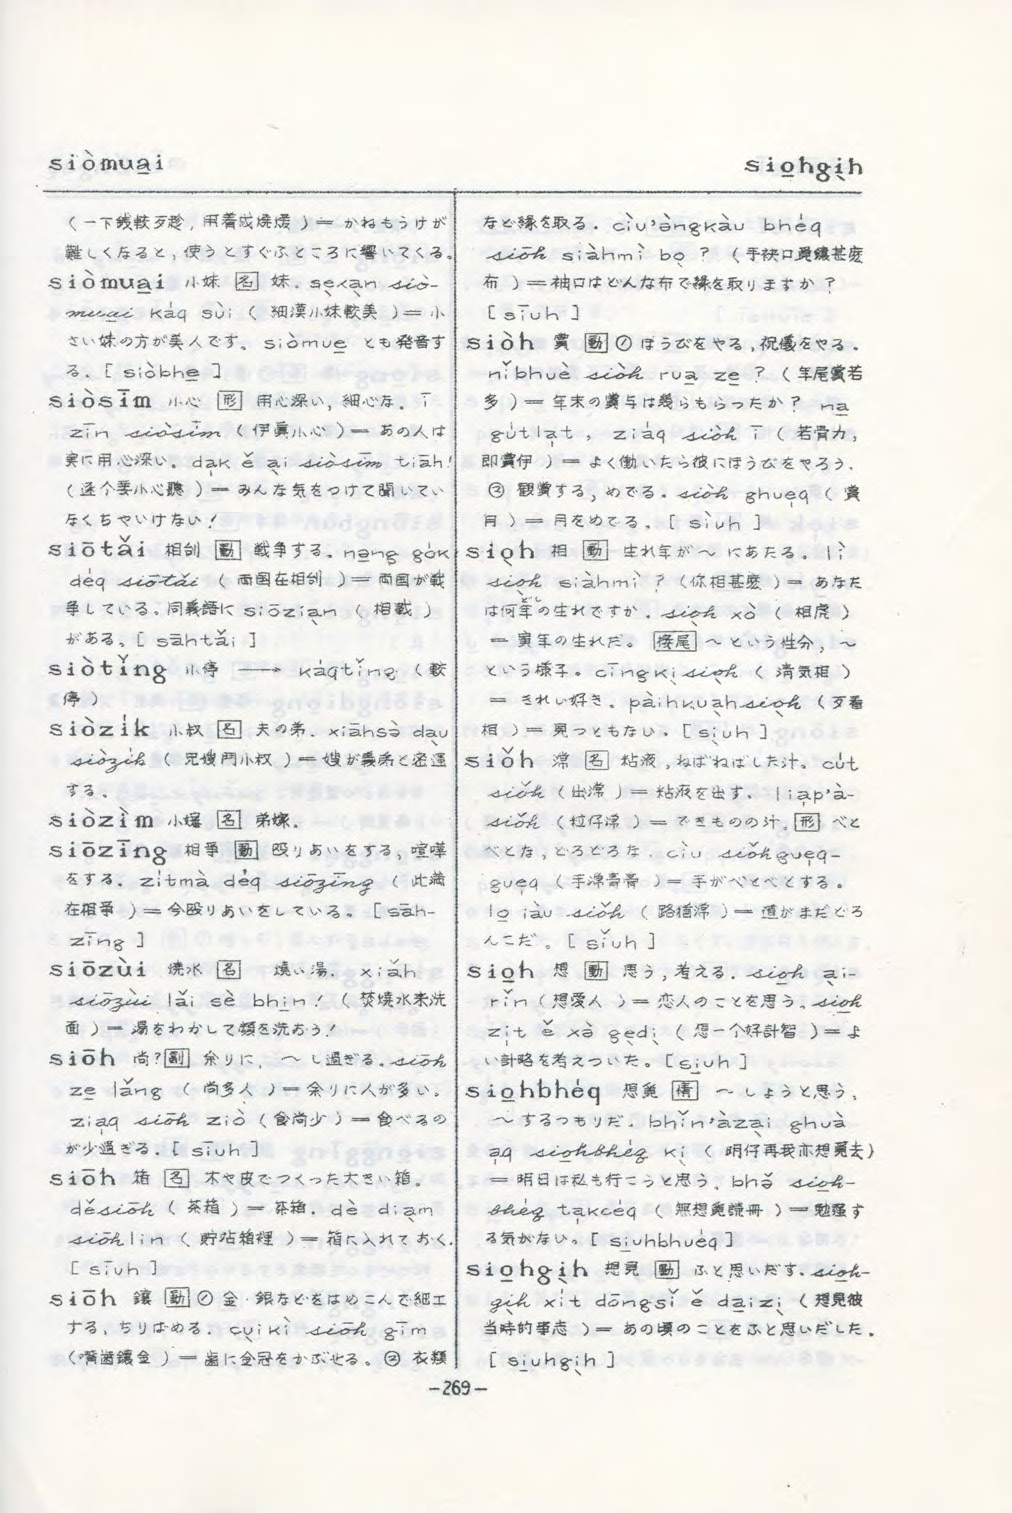 siòmuại
siọhgịh
(一下銭較歹趁, 用着成燒燙) ＝ かねもうけが
難しくなると, 使うとすぐふところに響いてくる。
siòmuại 小妹 [名] 妹. sẹxạn siò-
muại káq sùi ( 細漢小妹較美 ) ＝ 小
さい妹の方が美人です。 siòmuẹ とも発音す
る. [ siòbhẹ ]
siòsīm 小心 [形] 用心深い, 細心な. ī
zīn siòsīm ( 伊眞小心 ) ＝ あの人は
実に用心深い。 dạk ě ại siòsīm tiāh!
( 逐个要小心聽 ) ＝ みんな気をつけて聞いてい
なくちゃいけない!
siōtǎi 相刣 [動] 戦争する. nạng gók
déq siōtǎi ( 両国在相刣 ) ＝ 両国が戦
争している。同義語に siōziạn ( 相戦 )
がある。 [ sāhtǎi ]
siòtǐng 小停 ⟶ káqtǐng ( 較
停 )
siòzík 小叔 [名] 夫の弟. xiāhsà dạu
siòzík ( 兄嫂鬥小叔 ) ＝ 嫂が義弟と密通
する.
siòzìm 小嬸 [名] 弟嫁.
siōzīng 相爭 [動] 殴りあいをする, 喧嘩
をする. zítmà déq siōzīng ( 此滿
在相爭 ) ＝ 今殴りあいをしている。 [ sāh-
zīng ]
siōzùi 燒水 [名] 燒い湯. xiǎh
siōzùi lǎi sè bhịn! ( 焚燒水来洗
面 ) ＝ 湯をわかして顔を洗おう!
siōh 尚? [副] 余りに, 〜し過ぎる. siōh
zẹ lǎng ( 尚多人 ) ＝ 余りに人が多い.
ziạq siōh ziò ( 食尚少 ) ＝ 食べるの
が少過ぎる. [ sīuh ]
siōh 箱 [名] 木や皮でつくった大きい箱.
děsiōh ( 茶箱 ) ＝ 茶箱. dè diạm
siōhlin ( 貯站箱裡 ) ＝ 箱に入れておく.
[ sīuh ]
siōh 鑲 [動] ① 金・銀などをはめこんで細工
する, ちりばめる. cụikì siōh gīm
( 嘴齒鑲金 ) ＝ 歯に金冠をかぶせる。 ② 衣類
など縁を取る. cìu'àngkàu bhéq
siōh siàhmì bọ ? ( 手䘼口鑲甚麼
布 ) ＝ 袖口はどんな布で縁を取りますか?
[ sīuh ]
siòh 賞 [動] ① ほうびをやる, 祝儀をやる.
nǐbhuè siòh ruạ zẹ ? ( 年尾賞若
多 ) ＝ 年末の賞与は幾らもらったか? nạ
gútlạt, ziáq siòh ī ( 若骨力,
即賞伊 ) ＝ よく働いたら彼にほうびをやろう.
② 観賞する, めでる. siòh ghuẹq ( 賞
月 ) ＝ 月をめでる. [ sìuh ]
siọh 相 [動] 生れ年が〜にあたる. lì
siọh siàhmì ? ( 你相甚麼 ) ＝ あなた
は何年の生れですか. siọh xò ( 相虎 )
＝ 寅年の生れだ。 [接尾] 〜という性分, 〜
という様子。 cīngkịsiọh ( 清気相 )
＝ きれい好き. pàihkụahsiọh ( 歹看
相 ) ＝ 見っともない. [ sịuh ]
siǒh 潒 [名] 粘液, ねばねばした汁. cút
siǒh ＝ 粘液を出す. liạp'à-
siǒh ( 粒仔 ) ＝ できものの汁. [形] べと
べとな, どろどろな. cìu siǒhguẹq-
guẹq ＝ 手がべとべとする.
lọ iàu siǒh ＝ 道がまだどろ
んこだ。 [ sǐuh ]
siọh 想 [動] 思う, 考える. siọh ại-
rǐn ( 想愛人 ) ＝ 恋人のことを思う. siọh
zịt ě xà gẹdị ( 想一个好計智 ) ＝ よ
い計略を考えついた。 [ sịuh ]
siọhbhéq 想 [情] 〜しようと思う,
〜するつもりだ. bhǐn'àzại ghuà
ạq siọhbhéq kị ( 明仔再我亦想去 )
＝ 明日は私も行こうと思う。 bhǒ siọh-
bhéq tạkcéq ( 無想讀冊 ) ＝ 勉強す
る気がない。 [ sịuhbhuéq ]
siọhgịh 想見 [動] ふと思いだす. siọh-
gịh xịt dōngsǐ ě dạizị ( 想見彼
当時的事志 ) ＝ あの頃のことをふと思いだした.
[ sịuhgịh ]
—269—